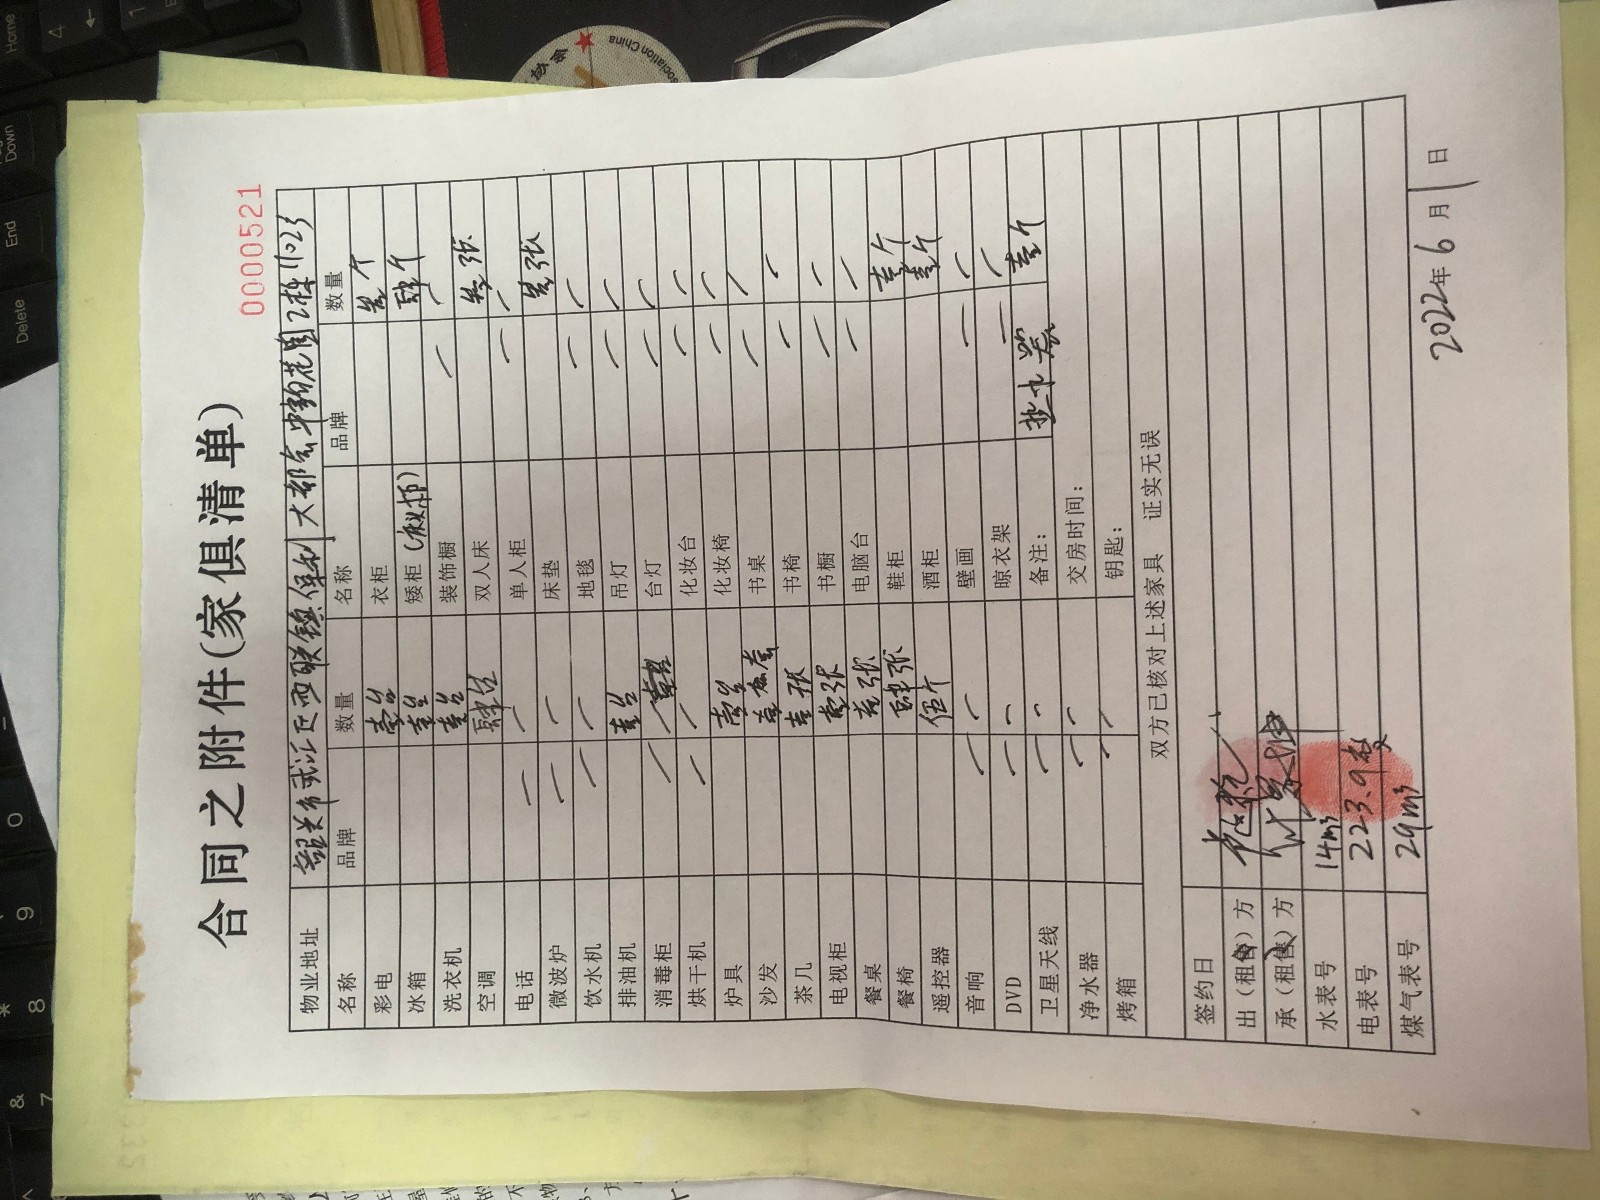 合同之附件(家俱清单)
0000521
物业地址 韶关市武江区西联镇保利大都会中韵花园2栋1102号
名称 品牌 数量 名称 品牌 数量
彩电 壹台 衣柜 叁个
冰箱 壹台 矮柜 肆个
洗衣机 壹台 装饰橱
空调 肆台 双人床 叁张
电话 单人柜
微波炉 床垫 叁张
饮水机 地毯
排油机 壹台 吊灯
消毒柜 台灯
烘干机 化妆台
炉具 壹台 化妆椅
沙发 壹套 书桌
茶几 壹张 书椅
电视柜 壹张 书橱
餐桌 壹张 电脑台
餐椅 肆张 鞋柜 壹个
遥控器 伍个 酒柜 壹个
音响 壁画
DVD 晾衣架
卫星天线 备注: 热水器 壹个
净水器 交房时间:
烤箱 钥匙:
双方已核对上述家具 证实无误
签约日
出(租售)方
承(租售)方
水表号 14m³
电表号 223.9度
煤气表号 29m³
2022年6月1日
Home
Down
End
Delete